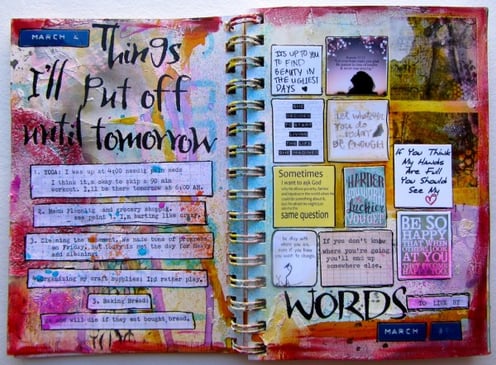 MARCH 4
Things
I'll Put off
until tomorrow
1. YOGA: I was up at 4:00
I think it's okay to skip a 90 min
workout. I'll be there tomorrow at 6:00 AM.
2. Menu Planning and grocery shop
see point 1, I'm hurting like crap.
3. Cleaning the basement. We made tons of progress
on Friday, but today is not the day for heavy
4 Organizing my craft supplies: I'd rather play.
5. Baking Bread:
will die if they eat bought bread.
ITS UP TO YOU
TO FIND
BEAUTY IN
THE UGLIEST
DAYS
SHE
DECIDED
TO START
LIVING
THE LIFE
SHE IMAGINED
Let whatever
you do
today
be enough!
Sometimes
I want to ask God
same question
HARDER
you
THE
luckier
YOU GET
If You Think
My Hands
Are Full
You Should
See My
Be okay with
where you are,
even if you know
you want to change.
If you don't know
where you're going
you'll end up
somewhere else.
BE SO
HAPPY
THAT WHEN
OTHERS LOOK
AT YOU
THEY BECOME
HAPPY TOO
WORDS
TO LIVE BY
MARCH